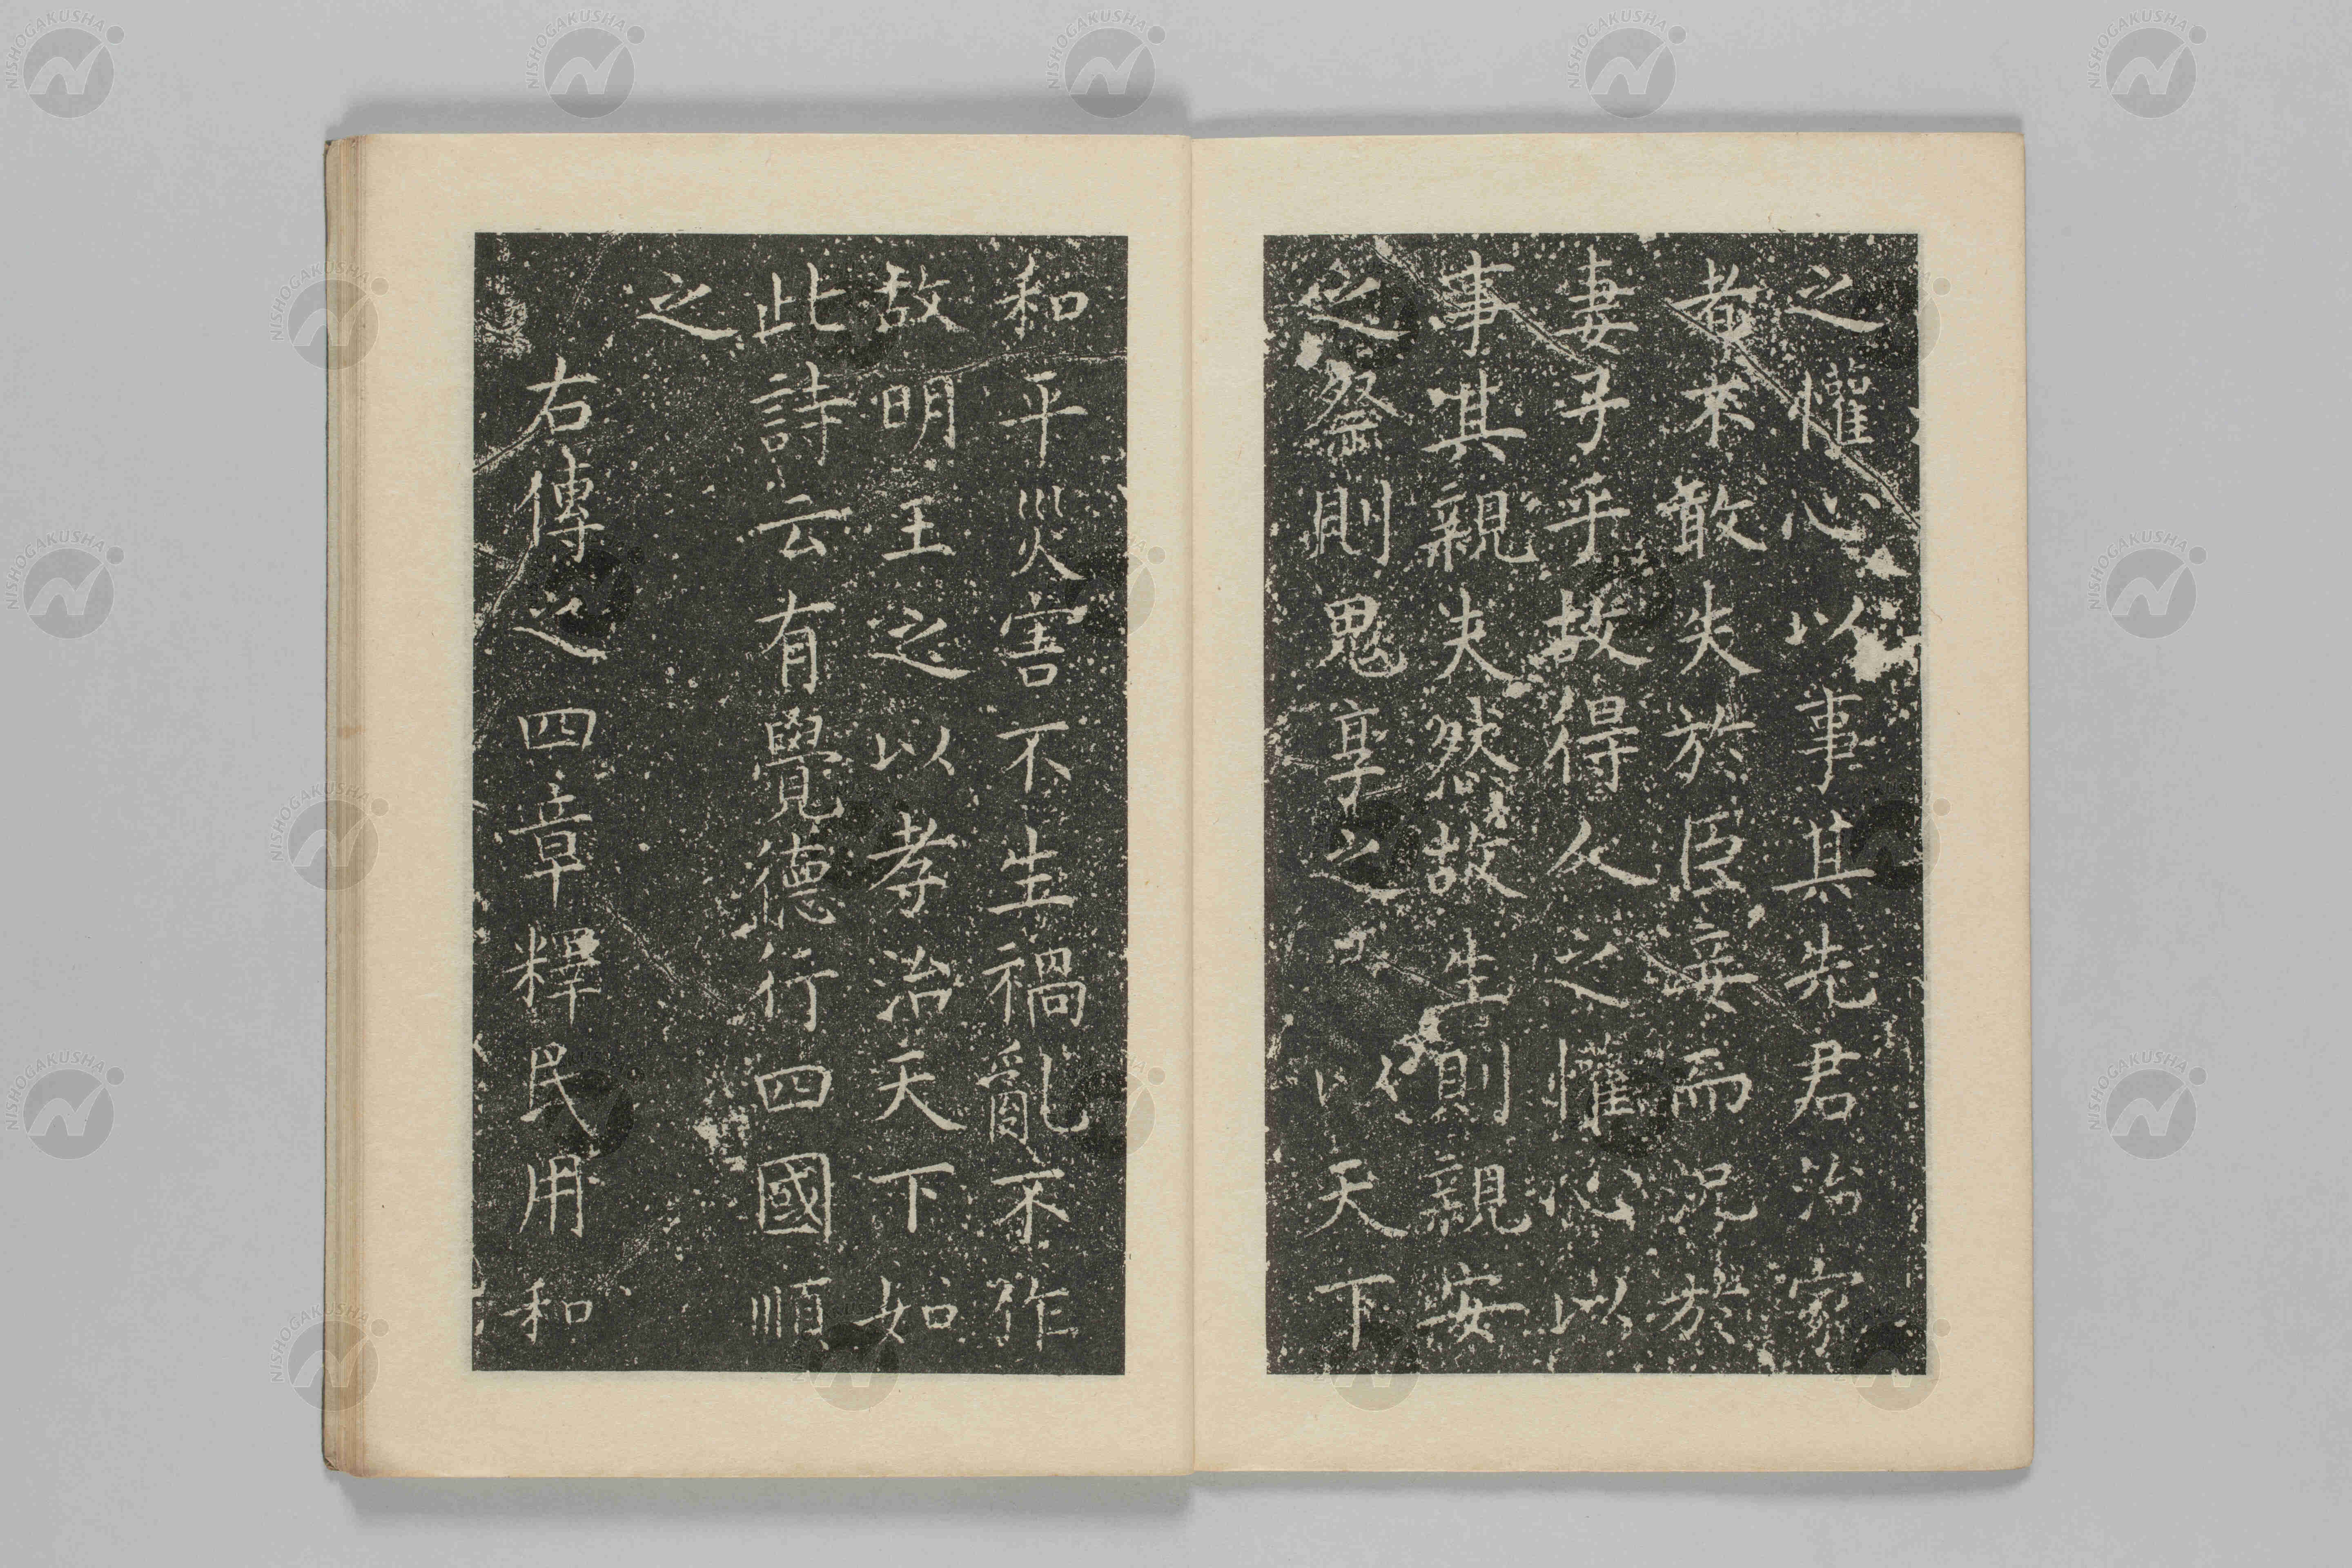 之懽心以事其先君治家
者不敢失於臣妾而況於
妻子乎故得人之懽心以
事其親夫然故生則親安
之祭則鬼享之 以天下
和平災害不生禍亂不作
故明王之以孝治天下如
此詩云有覺德行四國順
之
右傳之四章釋民用和
NISHOGAKUSHA